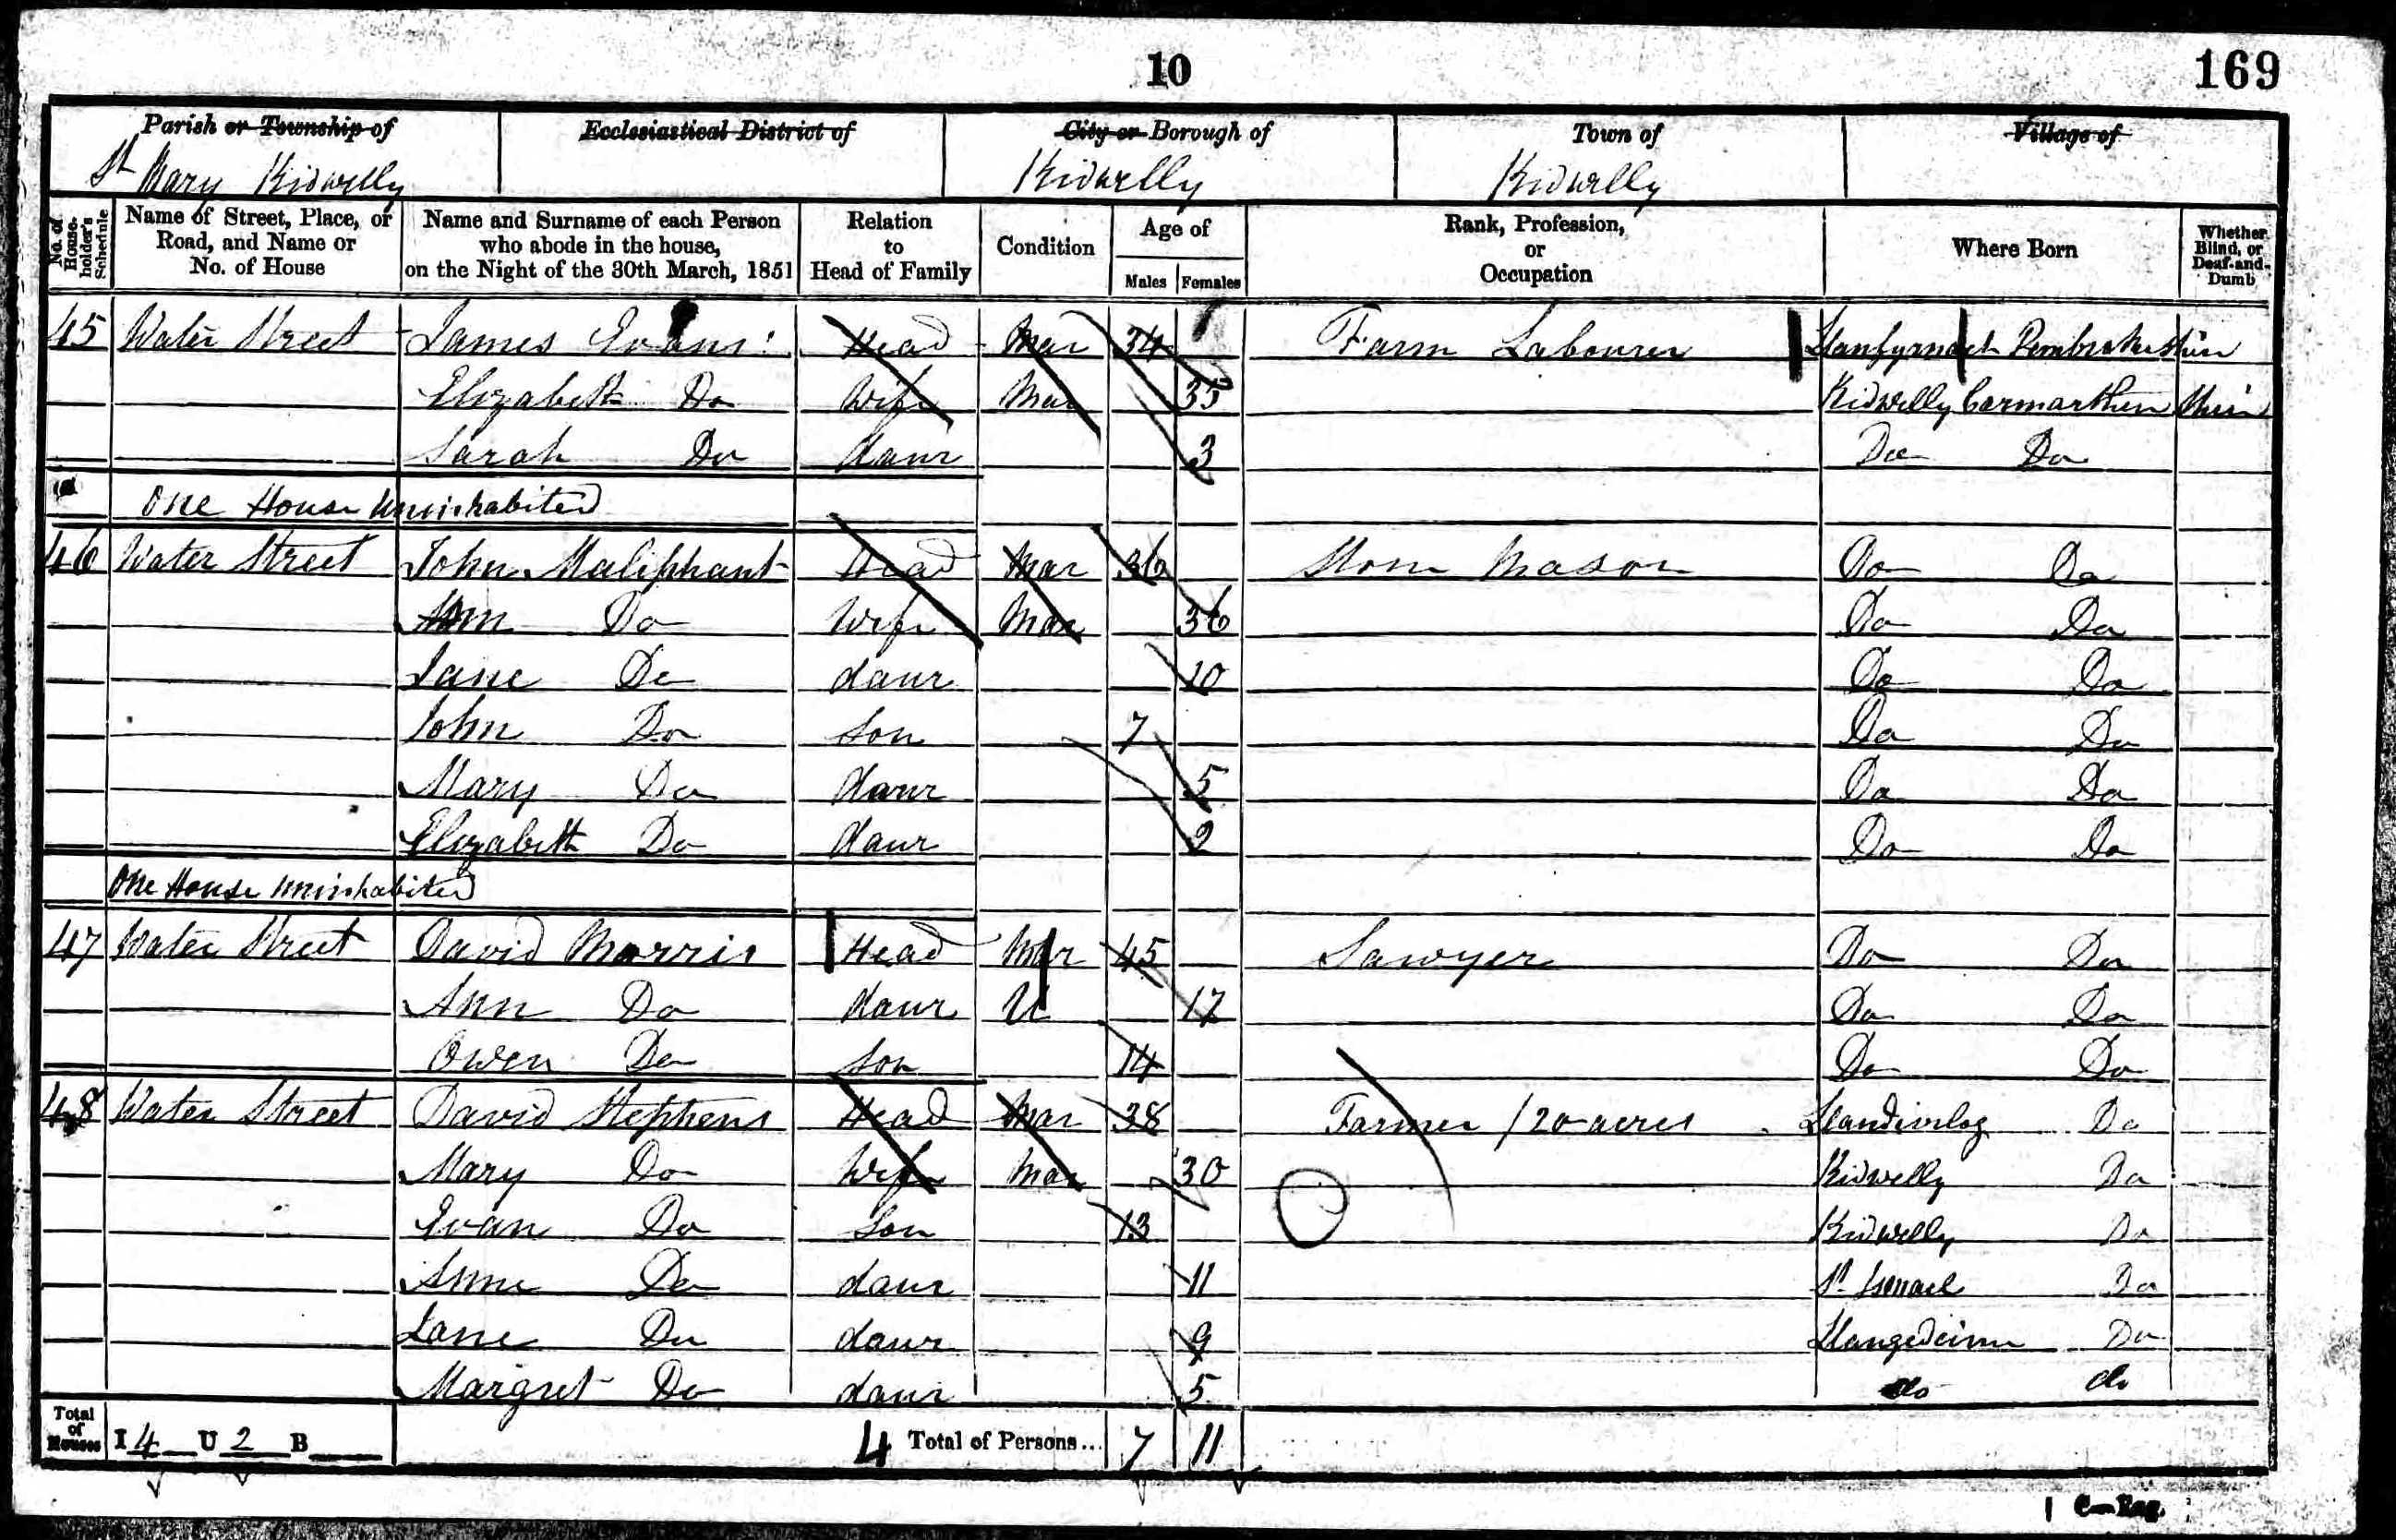 10
169
Parish or Township of Ecclesiastical District of City or Borough of Town of Village of
St Mary Kidwelly Kidwelly Kidwelly
No. of House-holder's Schedule
Name of Street, Place, or Road, and Name or No. of House
Name and Surname of each Person who abode in the house, on the Night of the 30th March, 1851
Relation to Head of Family
Condition
Age of
Males Females
Rank, Profession, or Occupation
Where Born
Whether Blind, or Deaf-and-Dumb
45 Water Street James Evans Head Mar 34 Farm Labourer Llanfyrnach Pembrokeshire
Elizabeth Do Wife Mar 35 Kidwelly Carmarthenshire
Sarah Do daur 3 Do Do
One House Uninhabited
46 Water Street John Maliphant Head Mar 36 Stone Mason Do Do
Ann Do Wife Mar 36 Do Do
Jane Do daur 10 Do Do
John Do Son 7 Do Do
Mary Do daur 5 Do Do
Elizabeth Do daur 2 Do Do
One House Uninhabited
47 Water Street David Morris Head Mar 45 Sawyer Do Do
Ann Do daur U 17 Do Do
Owen Do Son 14 Do Do
48 Water Street David Stephens Head Mar 38 Farmer / 20 acres Do
Mary Do Wife Mar 30 Kidwelly Do
Evan Do Son 13 Kidwelly Do
Anne Do daur 11 St Ismael Do
Jane Do daur 9 Do
Margret Do daur 5 do do
Total of Houses I 4 U 2 B 4 Total of Persons... 7 11